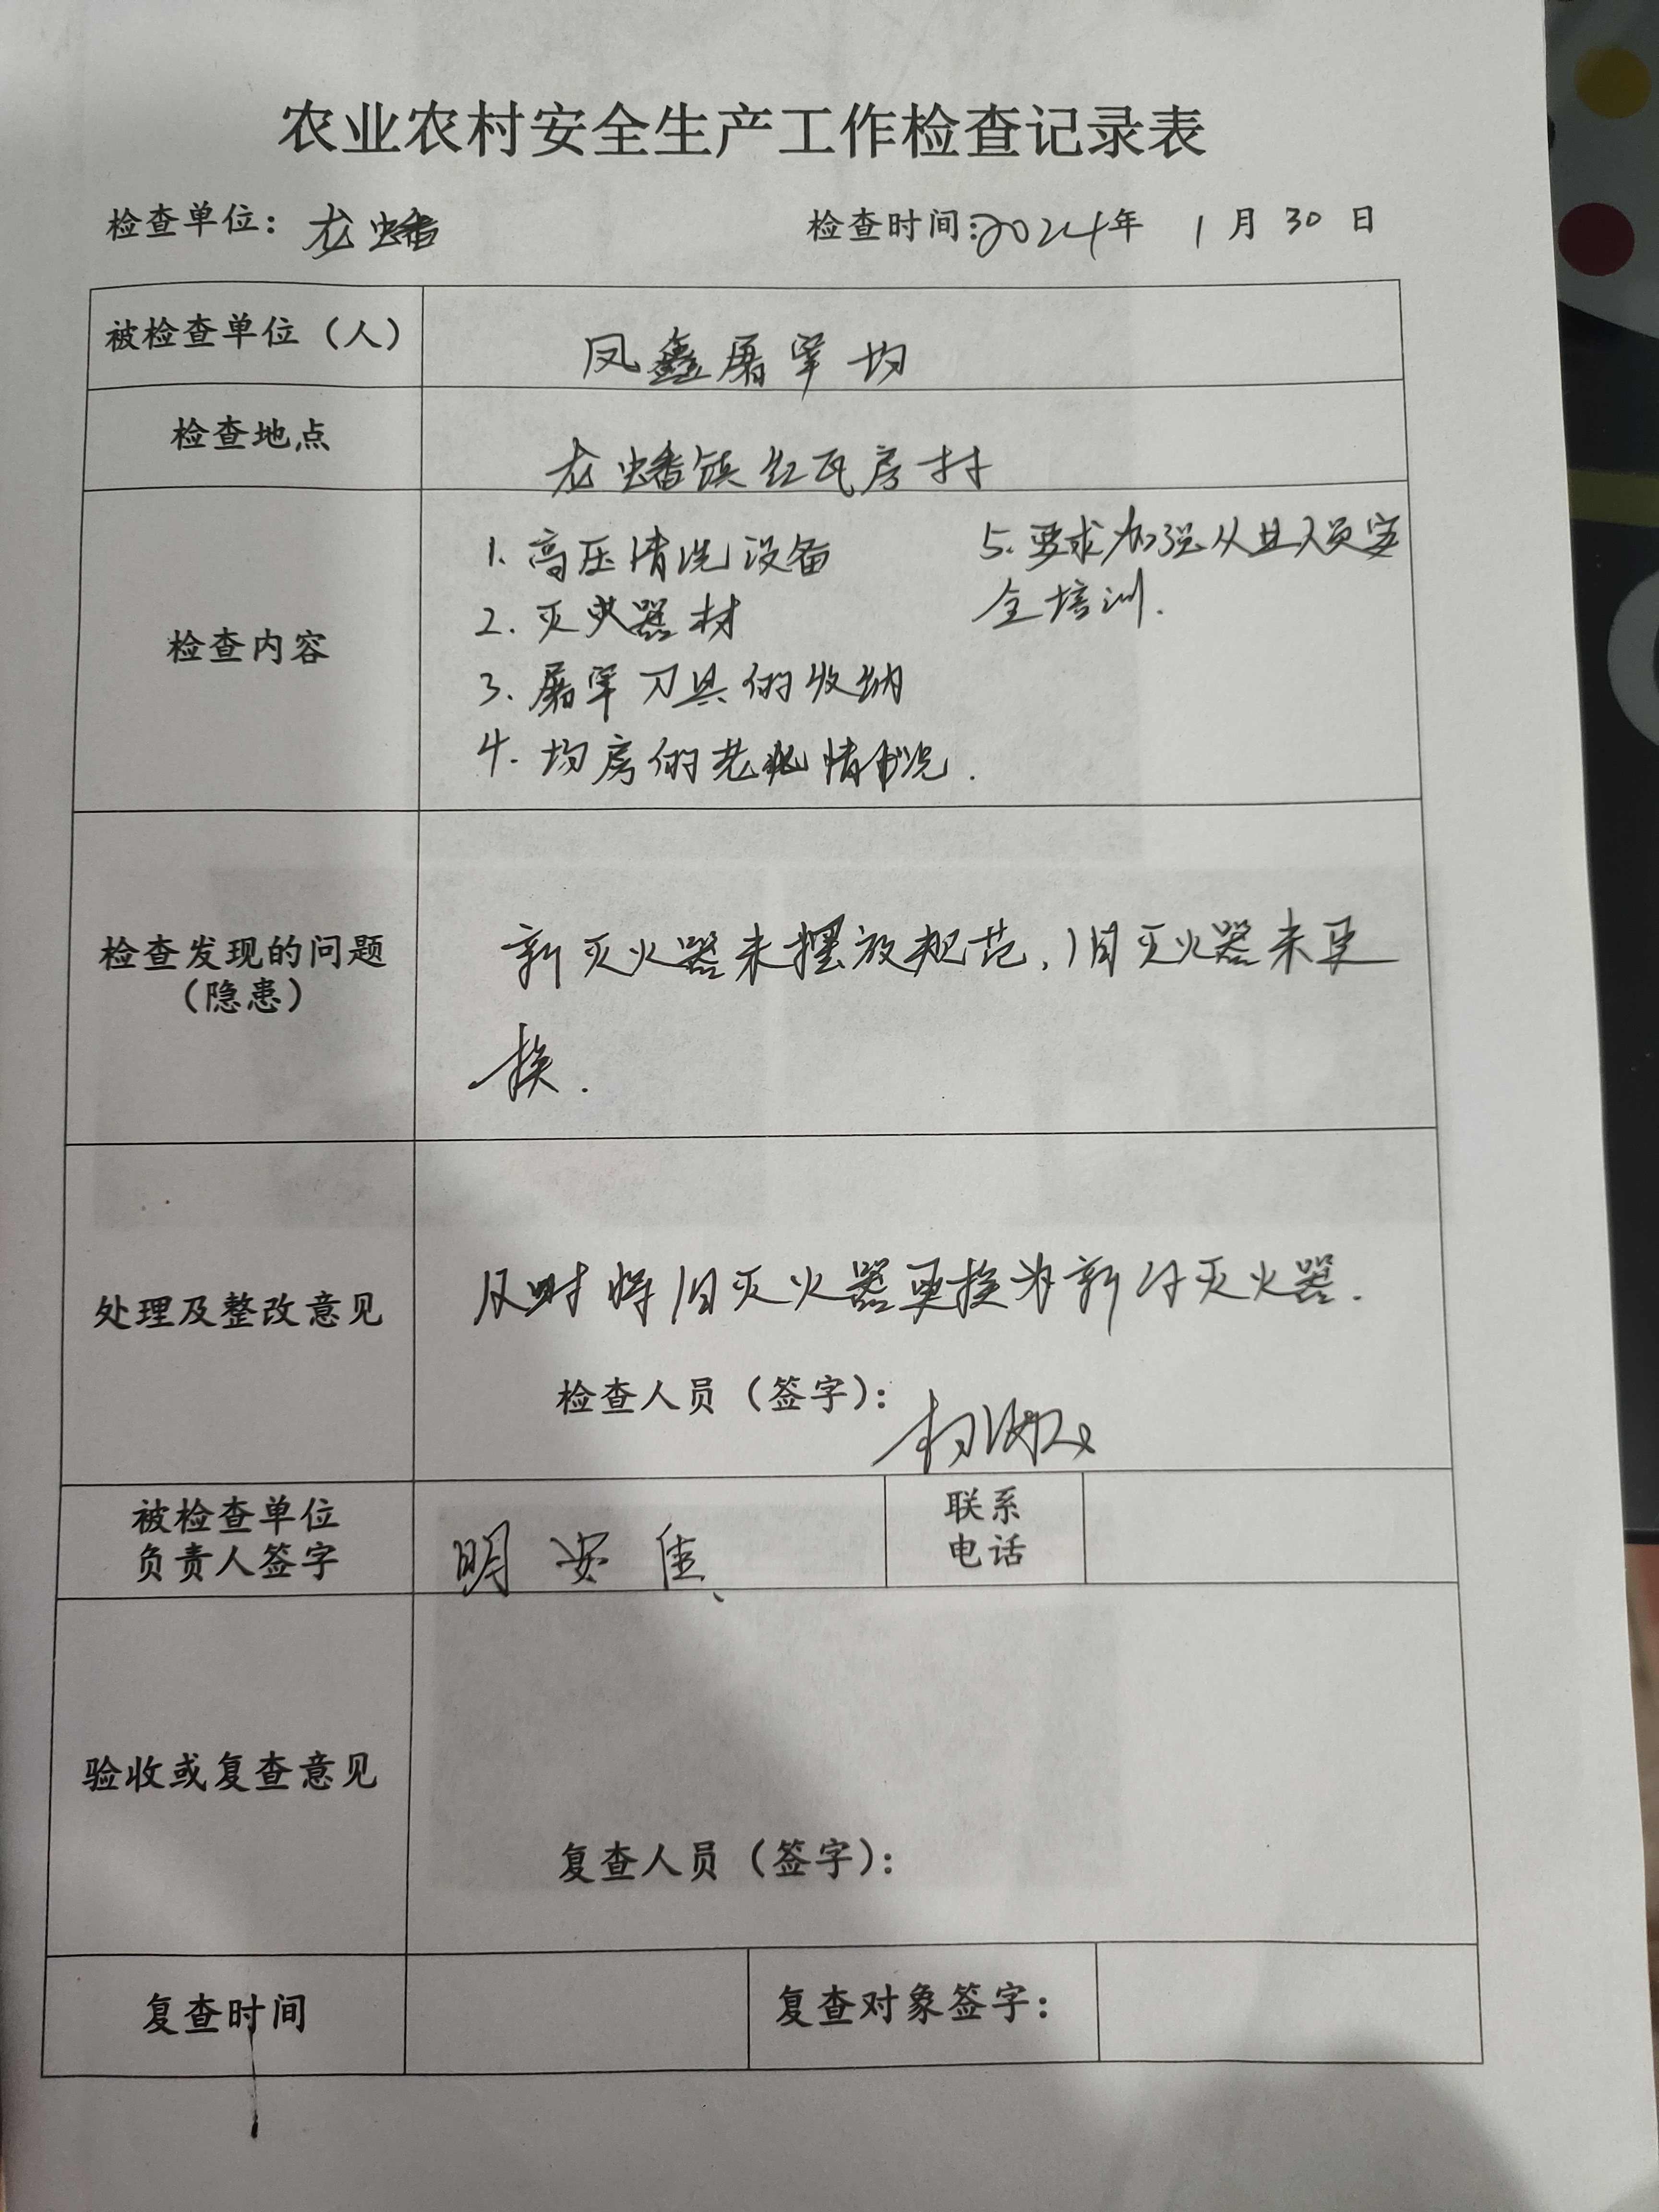 农业农村安全生产工作检查记录表
检查单位：龙蟠 检查时间：2024年 1月 30 日
被检查单位（人） 凤鑫屠宰场
检查地点 龙蟠镇红瓦房村
检查内容
1. 高压清洗设备
2. 灭火器材
3. 屠宰刀具的收纳
4. 场房的老化情况.
5. 要求加强从业人员安
全培训.
检查发现的问题
（隐患）
新灭火器未摆放规范,旧灭火器未更
换.
处理及整改意见
及时将旧灭火器更换为新的灭火器.
检查人员（签字）：
被检查单位
负责人签字
明安佳
联系
电话
验收或复查意见
复查人员（签字）：
复查时间 复查对象签字：